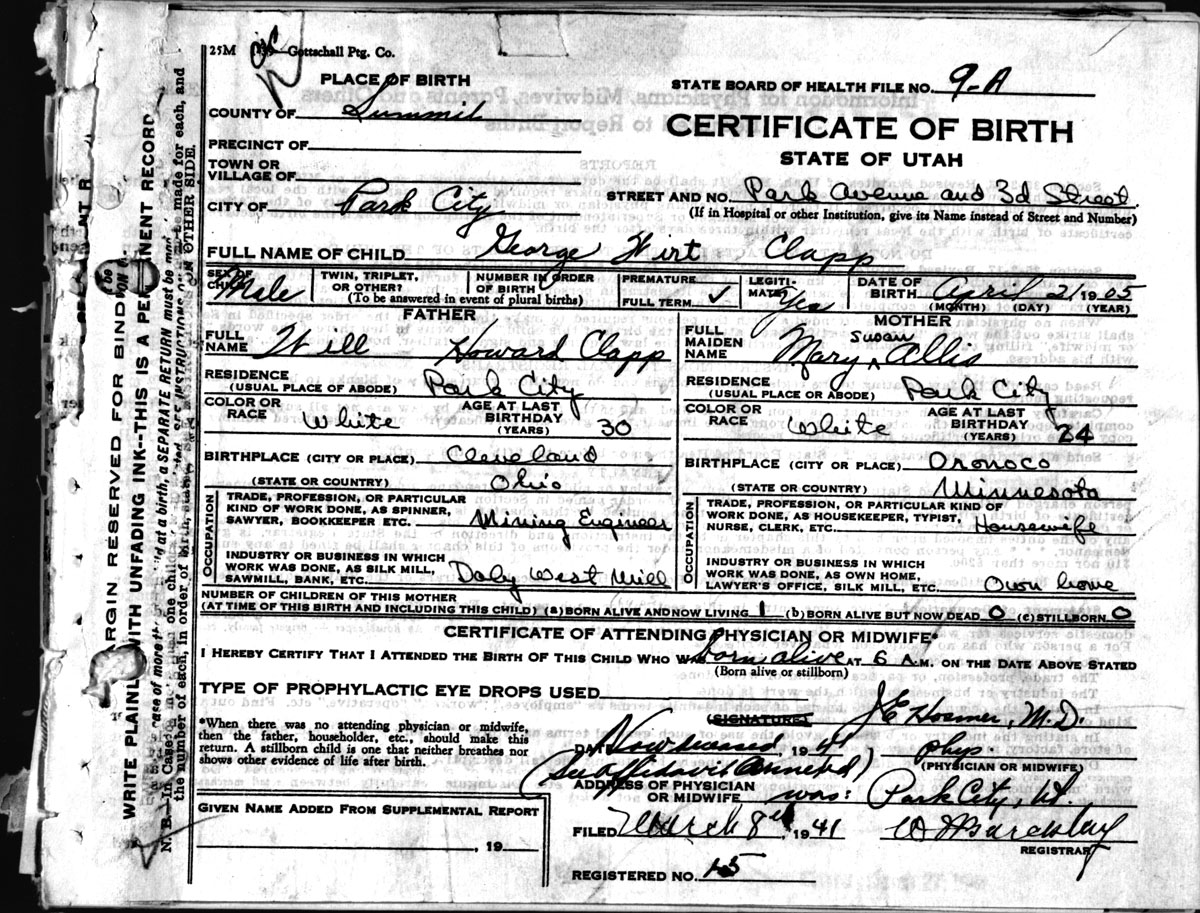 25M Gottschall Ptg. Co.
PLACE OF BIRTH
STATE BOARD OF HEALTH FILE NO. 9-A
COUNTY OF Summit
CERTIFICATE OF BIRTH
PRECINCT OF
STATE OF UTAH
TOWN OR
VILLAGE OF
CITY OF Park City
STREET AND NO. Park Avenue and 3d Street
(If in Hospital or other Institution, give its Name instead of Street and Number)
FULL NAME OF CHILD George Wirt Clapp
SEX OF CHILD Male
TWIN, TRIPLET, OR OTHER?
NUMBER IN ORDER OF BIRTH
(To be answered in event of plural births)
PREMATURE
FULL TERM ✓
LEGITIMATE? Yes
DATE OF BIRTH April 21 1905
(MONTH) (DAY) (YEAR)
FATHER
FULL NAME Will Howard Clapp
RESIDENCE (USUAL PLACE OF ABODE) Park City
COLOR OR RACE White
AGE AT LAST BIRTHDAY (YEARS) 30
BIRTHPLACE (CITY OR PLACE) Cleveland
(STATE OR COUNTRY) Ohio
OCCUPATION
TRADE, PROFESSION, OR PARTICULAR
KIND OF WORK DONE, AS SPINNER,
SAWYER, BOOKKEEPER ETC. Mining Engineer
INDUSTRY OR BUSINESS IN WHICH
WORK WAS DONE, AS SILK MILL,
SAWMILL, BANK, ETC. Daly West Mill
MOTHER
FULL MAIDEN NAME Mary Susan Allis
RESIDENCE (USUAL PLACE OR ABODE) Park City
COLOR OR RACE White
AGE AT LAST BIRTHDAY (YEARS) 24
BIRTHPLACE (CITY OR PLACE) Oronoco
(STATE OR COUNTRY) Minnesota
OCCUPATION
TRADE, PROFESSION, OR PARTICULAR KIND OF
WORK DONE, AS HOUSEKEEPER, TYPIST,
NURSE, CLERK, ETC. Housewife
INDUSTRY OR BUSINESS IN WHICH
WORK WAS DONE, AS OWN HOME,
LAWYER'S OFFICE, SILK MILL, ETC. Own home
NUMBER OF CHILDREN OF THIS MOTHER
(AT TIME OF THIS BIRTH AND INCLUDING THIS CHILD) (a) BORN ALIVE AND NOW LIVING 1 (b) BORN ALIVE BUT NOW DEAD 0 (c) STILLBORN 0
CERTIFICATE OF ATTENDING PHYSICIAN OR MIDWIFE*
I HEREBY CERTIFY THAT I ATTENDED THE BIRTH OF THIS CHILD WHO WAS born alive AT 6 A.M. ON THE DATE ABOVE STATED
(Born alive or stillborn)
TYPE OF PROPHYLACTIC EYE DROPS USED
*When there was no attending physician or midwife,
then the father, householder, etc., should make this
return. A stillborn child is one that neither breathes nor
shows other evidence of life after birth.
(SIGNATURE) J E Hosmer, M.D.
Now deceased, 194 phys.
(PHYSICIAN OR MIDWIFE)
(See Affidavit Annexed)
ADDRESS OF PHYSICIAN
OR MIDWIFE was: Park City, Ut.
GIVEN NAME ADDED FROM SUPPLEMENTAL REPORT
, 19
FILED March 8th, 1941 W D Barclay
REGISTRAR
REGISTERED NO. 15
MARGIN RESERVED FOR BINDING
WRITE PLAINLY WITH UNFADING INK--THIS IS A PERMANENT RECORD